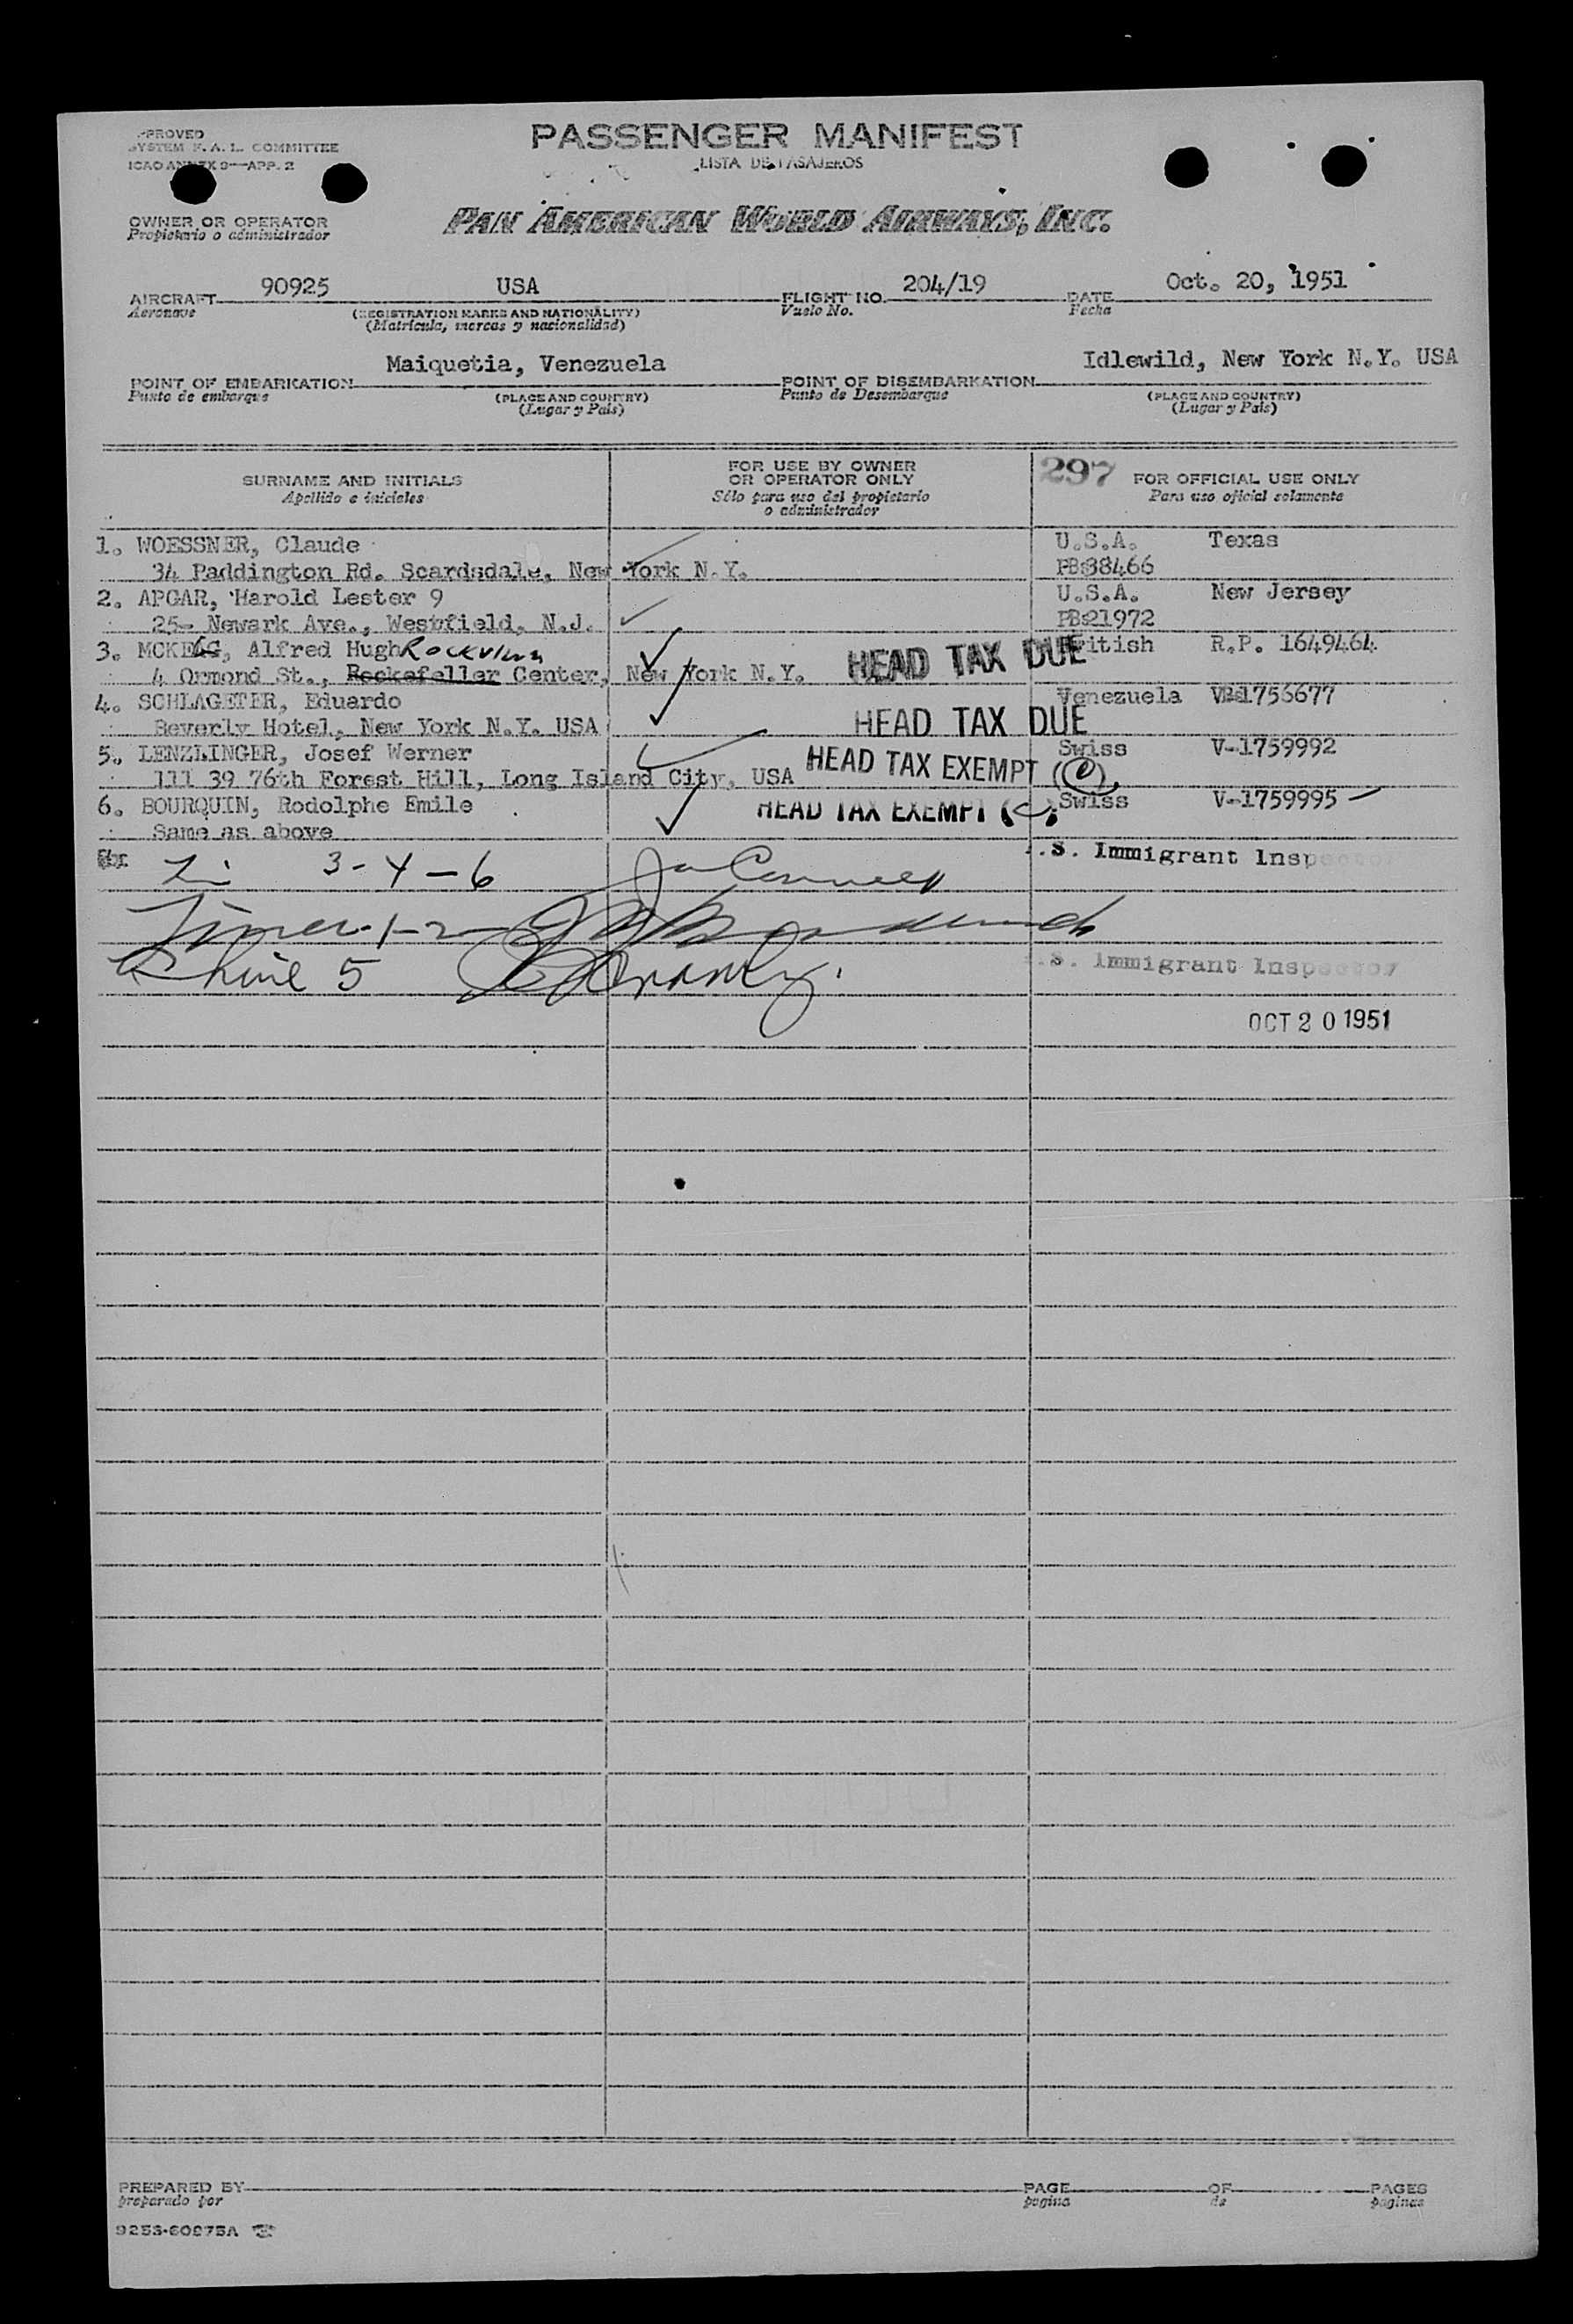 PROVED
SYSTEM F. A. L. COMMITTEE
ICAO ANNEX 9—APP. 2
PASSENGER MANIFEST
LISTA DE PASAJEROS
OWNER OR OPERATOR
Propietario o administrador
PAN AMERICAN WORLD AIRWAYS, INC.
AIRCRAFT 90925 USA FLIGHT NO. 204/19 DATE Oct. 20, 1951
Aeronave (REGISTRATION MARKS AND NATIONALITY) Vuelo No. Fecha
(Matrícula, marcas y nacionalidad)
POINT OF EMBARKATION Maiquetia, Venezuela POINT OF DISEMBARKATION Idlewild, New York N.Y. USA
Punto de embarque (PLACE AND COUNTRY) Punto de Desembarque (PLACE AND COUNTRY)
(Lugar y País) (Lugar y País)
SURNAME AND INITIALS
Apellido e iniciales
FOR USE BY OWNER
OR OPERATOR ONLY
Sólo para uso del propietario
o administrador
297 FOR OFFICIAL USE ONLY
Para uso oficial solamente
1. WOESSNER, Claude U.S.A. Texas
34 Paddington Rd. Scardsdale, New York N.Y. 38466
2. APGAR, Harold Lester 9 U.S.A. New Jersey
25- Newark Ave., Westfield, N.J. 21972
3. MCKE, Alfred Hugh HEAD TAX DUE British R.P. 1649464
4 Ormond St., Rockefeller Center, New York N.Y.
4. SCHLAGETER, Eduardo Venezuela 1756677
Beverly Hotel, New York N.Y. USA HEAD TAX DUE
5. LENZLINGER, Josef Werner Swiss V-1759992
111 39 76th Forest Hill, Long Island City, USA HEAD TAX EXEMPT
6. BOURQUIN, Rodolphe Emile HEAD TAX EXEMPT Swiss V-1759995
Same as above
3-4-6 .S. Immigrant Inspector
1-2
5 .S. Immigrant Inspector
OCT 20 1951
PREPARED BY PAGE OF PAGES
preparado por pagina de paginas
9253-60975A